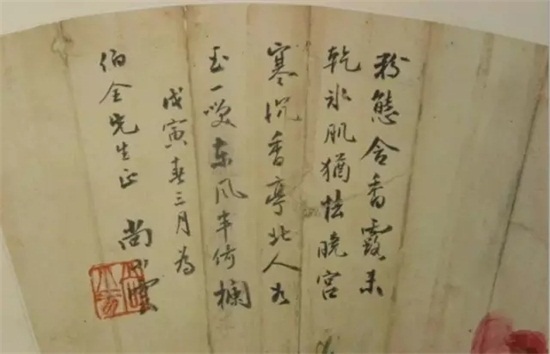 粉態含香露未
乾冰肌猶怯曉宮
寒沉香亭北人如
玉一咲东风半倚欄
戊寅春三月為
伯全先生正 尚小雲